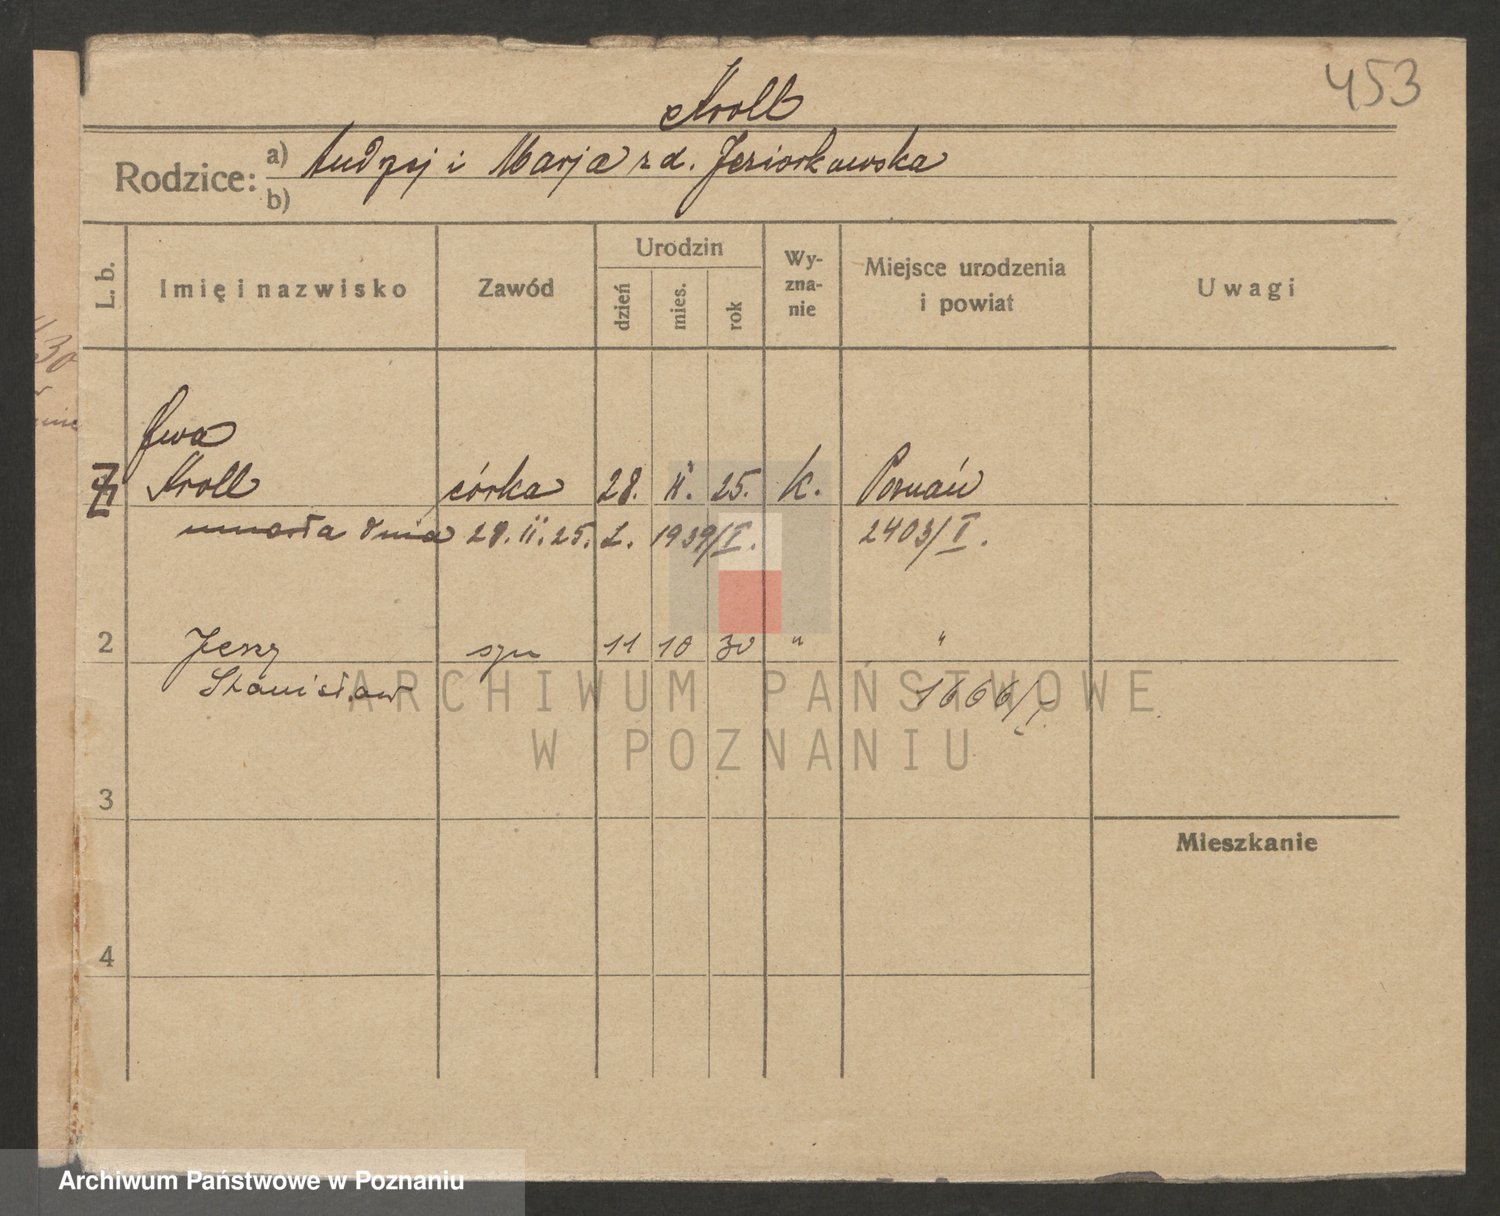 453
Kroll
Rodzice: a) Andrzej i Marja z d. Jeziorkowska
b)
L. b.
Imię i nazwisko
Zawód
Urodzin
dzień
mies.
rok
Wy-
zna-
nie
Miejsce urodzenia
i powiat
Uwagi
30
Ewa
Kroll córka 28. II. 25. k. Poznań
umarła dnia 28. II. 25. L. 1939/I. 2403/I.
2 Jerzy syn 11 10 30 " "
Stanisław 1666/I.
ARCHIWUM PAŃSTWOWE
W POZNANIU
3
Mieszkanie
4
Archiwum Państwowe w Poznaniu